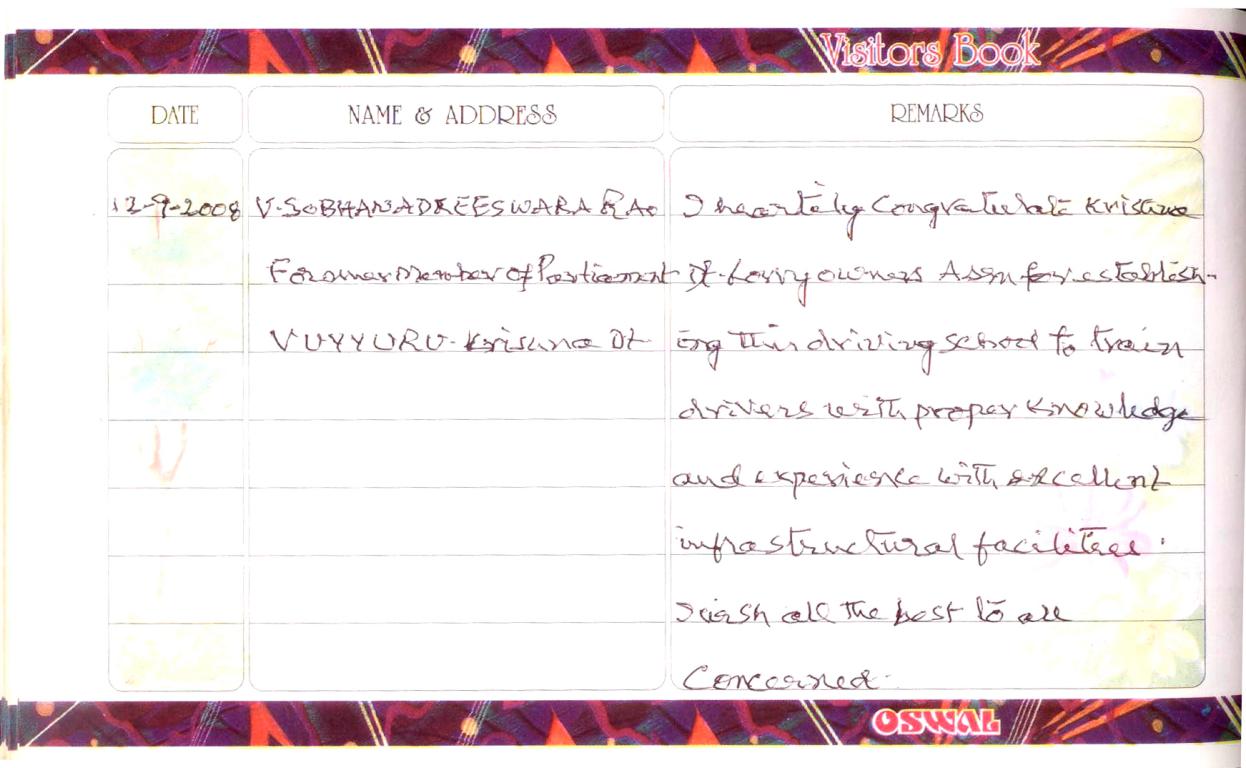 Visitors Book
DATE NAME & ADDRESS REMARKS
12-9-2008 V. SOBHANADREESWARA RAO I heartily Congratulate Krishna
Former Member of Parliament Dt. Lorry owners Assn for establish-
VUYYURU. Krishna Dt ing this driving school to train
drivers with proper knowledge
and experience with excellent
infrastructural facilities.
I wish all the best to all
Concerned.
OSWAL